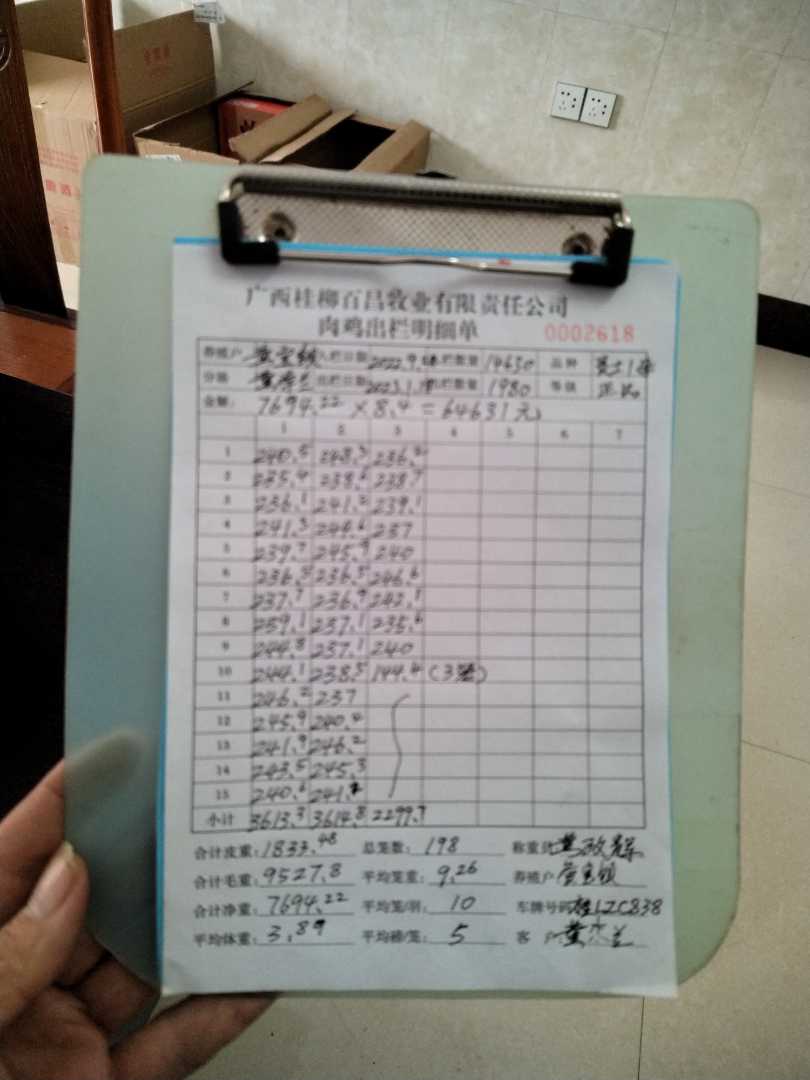 广西桂柳百昌牧业有限责任公司
肉鸡出栏明细单 0002618
养殖户 入栏日期 2022.9. 入栏数量 14630 品种
分场 出栏日期 2023.1. 出栏数量 1980 等级 正品
金额: 7694.22 × 8.4 = 64631元
1 2 3 4 5 6 7
1 240.5 248.3 236.2
2 235.4 238.6 238.7
3 236.1 241.2 239.1
4 241.3 244.6 237
5 239.7 245.9 240
6 236.5 236.5 246.6
7 237.7 236.9 242.1
8 239.1 237.1 235.6
9 244.8 237.1 240
10 244.1 238.5 144.4 (3笼)
11 246.2 237
12 245.9 240.2
13 241.9 246.2
14 243.5 245.3
15 240.6 241.2
小计 3613.3 3614.8 2299.7
合计皮重: 1833.48 总笼数: 198 称重员
合计毛重: 9527.8 平均笼重: 9.26 养殖户
合计净重: 7694.22 平均笼/羽: 10 车牌号码 桂LZC838
平均体重: 3.89 平均棒/笼: 5 客户